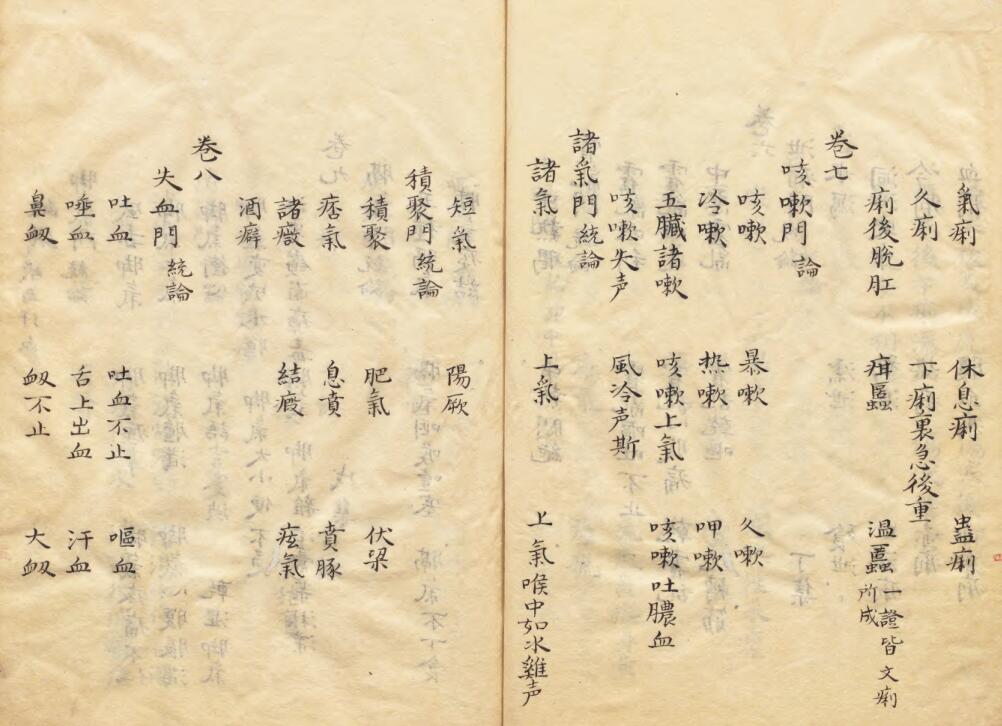 氣痢 休息痢 蠱痢
久痢 下痢裏急後重
痢後脫肛 疳䘌 溫䘌 一證皆文痢所成
卷七
咳嗽門 論
咳嗽 暴嗽 久嗽
冷嗽 热嗽 呷嗽
五臟諸嗽 咳嗽上氣 咳嗽吐膿血
咳嗽失声 風冷声斯
諸氣門 統論
諸氣 上氣 上氣喉中如水雞声
短氣 陽厥
積聚門 統論
積聚 肥氣 伏梁
痞氣 息賁 賁豚
諸癥 結瘕 痃氣
酒癖
卷八
失血門 統論
吐血 吐血不止 嘔血
唾血 舌上出血 汗血
鼻衂 衂不止 大衂